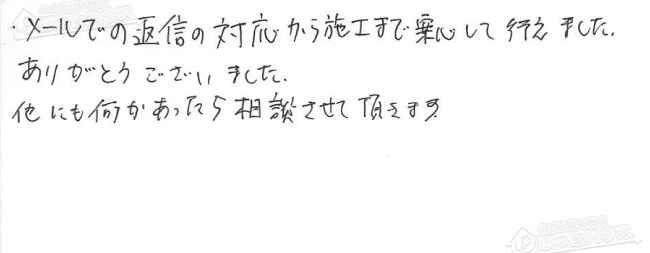 ・メールでの返信の対応から施工まで安心して行えました.
ありがとうございました.
他にも何かあったら相談させて頂きます